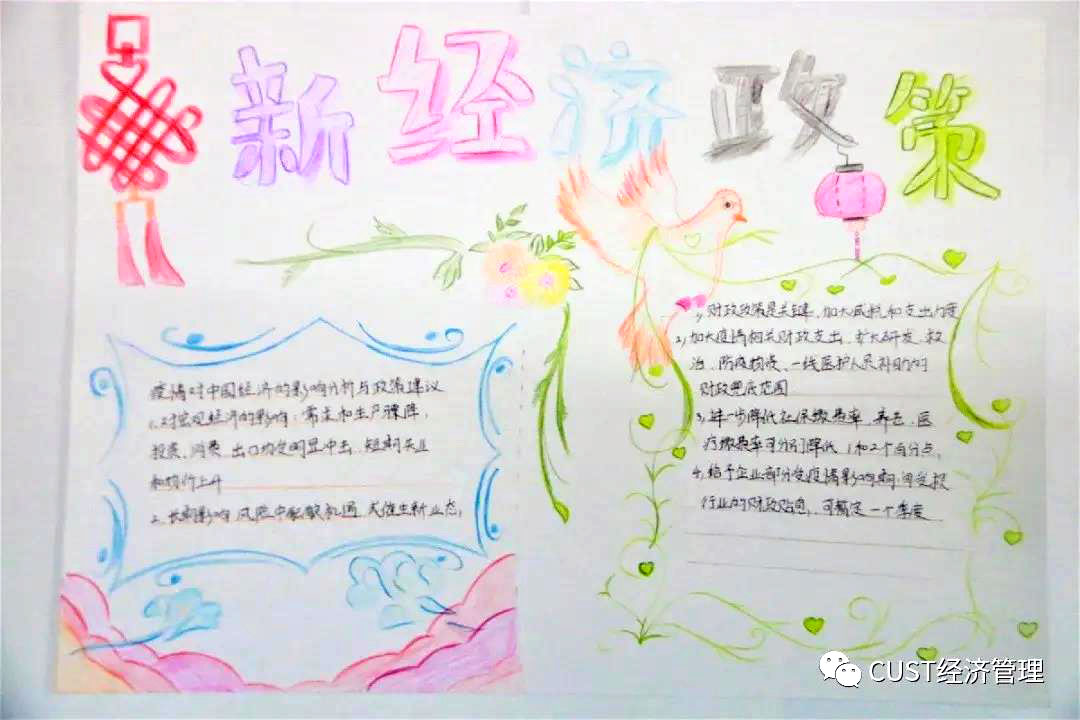 新经济政策
疫情对中国经济的影响分析与政策建议
1.对宏观经济的影响:需求和生产骤降,
投资、消费、出口均受明显冲击,短期失业
和物价上升
2.长期影响 风险中蕴酿机遇 或催生新业态;
1,财政政策是关键,加大减税和支出力度
2,加大疫情相关财政支出,扩大研发、救
治、防疫物资、一线医护人员补助的
财政兜底范围
3,进一步降低社保缴费率,养老、医
疗缴费率可分别降低1和2个百分点,
4.给予企业部分受疫情影响
行业的财政贴息,可暂定一个季度
CUST经济管理